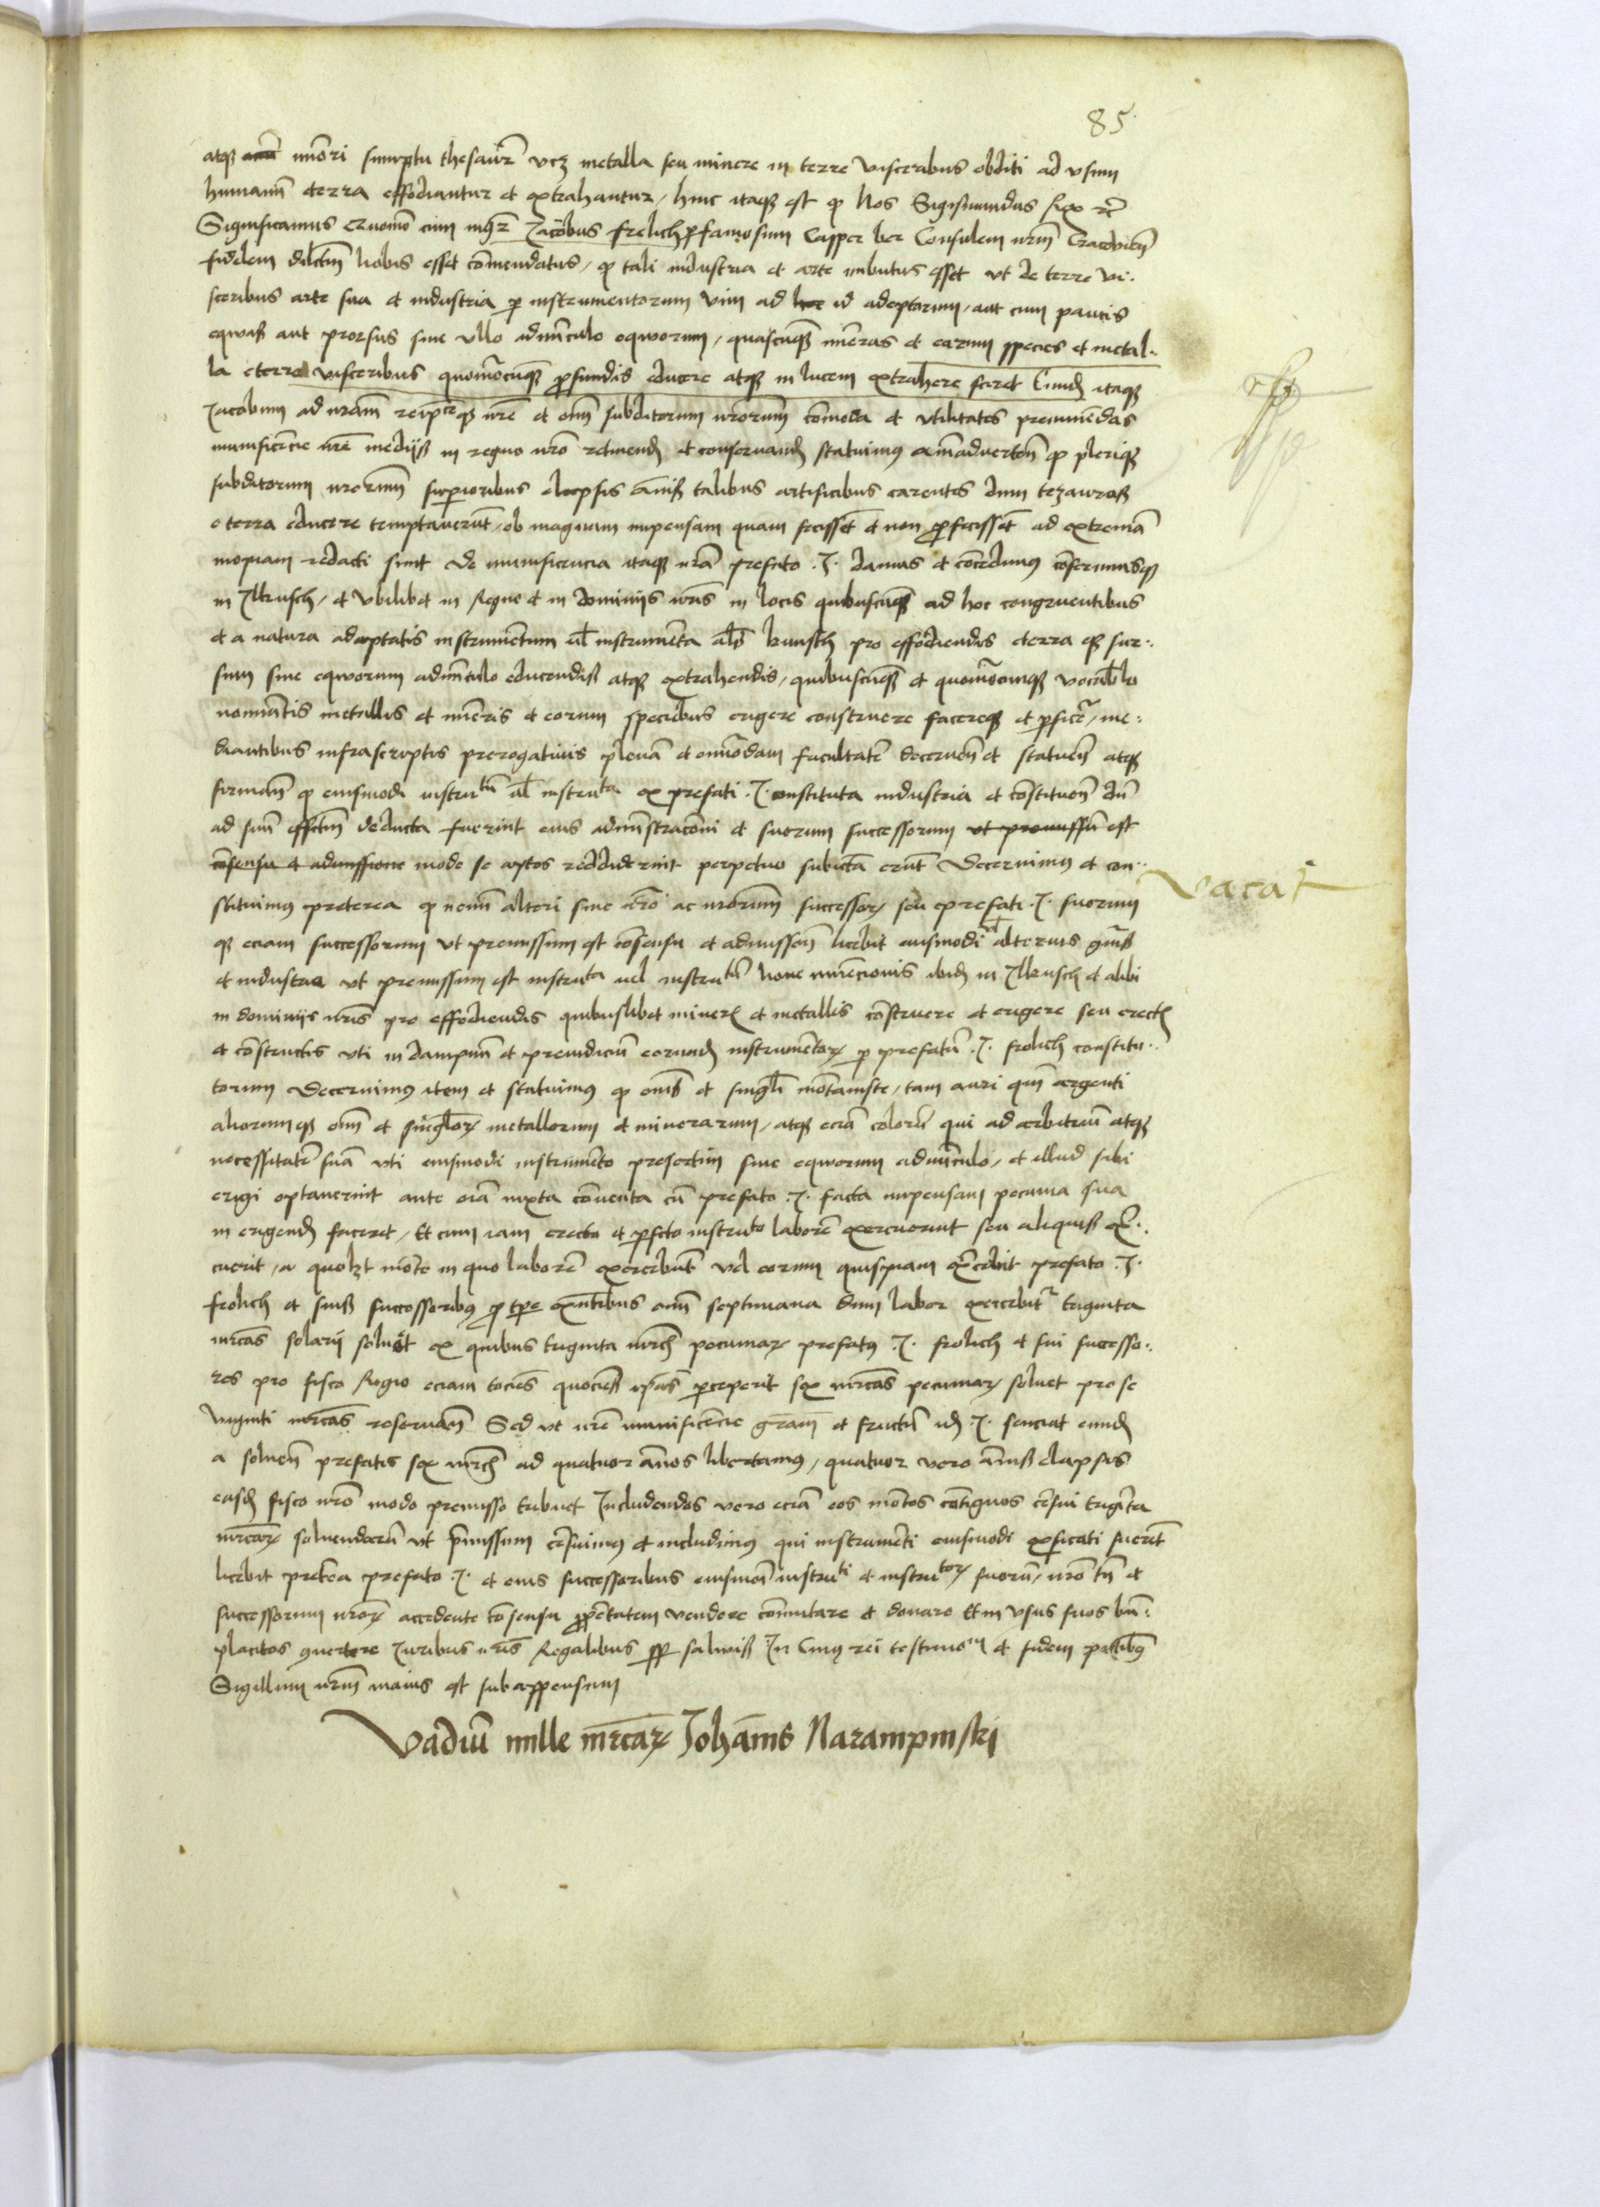 85
atq minori sumptu thesauri vcz metalla seu minere in terre visceribus obditi ad vsum
humanu eterra effodiantur et extrahantur / hinc itaq est q Nos Sigismundus Rex etc
Significamus Quomo cum mgr Jacobus frelich p famosum Casper ber Consulem nrm Cracovien
fidelem dilectm Nobis esset comendatus / q tali industria et arte imbutus esset vt de terre vi
sceribus arte sua et industria p instrumentorum vim ad hoc id adeptorum / aut cum paucis
eqwis aut prorsus sine vllo adminculo eqworum / quascuq mineras et earum species et metal
la eterre visceribus quomocuq profundis educere atq in lucem extrahere sciret Eund itaq
Jacobum ad nram reipceq nre et omn subditorum nrorum comoda et vtilitates
munificencie nre mediis in regno nro retinend et conservand statuimus q pleriq
subditorum nrorum superioribus elapsis annis talibus artificibus carentes dum tezauros
e terra educere temptaverut / ob magnam impensam quam fecisset et non profecisset ad extrema
inopiam redacti sunt De munificencia itaq nra prefato .J. damus et concedimus conferimusq
in Ilkusch / et vbilibet in Regno et in dominiis nris in locis quibuscuq ad hoc congruentibus
et a natura adaptatis instrumentum ul instrumenta als kunsth pro effodiendis eterra et sur
sum sine eqworum adminculo educendis atq extrahendis / quibuscuq et quomocumq vocablo
nominatis metallis et mineris et eorum speciebus erigere construere facereq et pficere / me
diantibus infrascriptis prerogativis plena et omnimodam facultate decernen et statuen atq
firman q eiusmodi instrutu ul instruta ex prefati .J. constituta industria et constituen dum
ad suu effectm deducta fuerint eius adminstracioni et suorum successorum vt premissu est
consensu et admissione modo se aptos reddiderint perpetuo subiecta erut Decernimus et con
stituimus preterea q nemini alteri sine nro ac nrorum successor seu prefati .J. suorum
q eciam successorum vt premissum est consensu et admission licebit eiusmodi vel alterius generis
et industria vt premissum est instruta vel instrutu nove invencionis ibid in Ilkusch et alibi
in dominiis nris pro effodiendis quibuslibet miner et metallis construere et erigere seu erectis
et constructis vti in dampnu et preiudiciu eorund instrumentor p prefatu .J. frolich constitu
torum Decernimus item et statuimus q oms et singli montaniste / tam auri qm argenti
aliorumq omn et singlor metallorum et minerarum / atq ecia coloru qui ad arbitriu atq
necessitate sua vti eiusmodi instrumento presertim sine eqworum adminculo / et illud sibi
erigi optaverint ante oia iuxta conventa cu prefato .J. facta impensam pecunia sua
in erigend facerent / Et cum iam erecto et pfecto instruto labore exercuerint seu aliquis exer
cuerit / a quolzt monte in quo labore exercebut vel eorum quispiam exercebit prefato .J.
frolich et suis successoribus p tpe existentibus omn septimana dum labor exercebitr triginta
mrcas solarii solvet ex quibus triginta mrch pecuniar prefatus .J. frolich et sui successo
res pro fisco Regio eciam tocies quocies ipas perceperit sex mrcas pecuniar solvet pro se
viginti mrcas reservan Sed vt nre munificencie gram et fructu id .J. senciat eund
a solucn prefatis sex mrch ad quatuor annos libertamus / quatuor vero annis elapsis
easd fisco nro modo premisso tribuet Includendos vero ecia eos montes contiguos censui triginta
mrcar solvendaru vt pmissum censuimus et includimus qui instrumenti eiusmodi exsiccati fuerint
licebit preterea prefato .J. et eius successoribus eiusmodi instruti et instrutor suoru / nro tn et
successorum nror accedente consensu proprietatem vendere commutare et donare Et in vsus suos bn
placitos convertere Juribus nris Regalibus semp salvis In Cuius rei testimoniu et fidem
Sigillum nrm maius est subappensum
Vadiu mille mrcar Johanis Narampinski
vacat